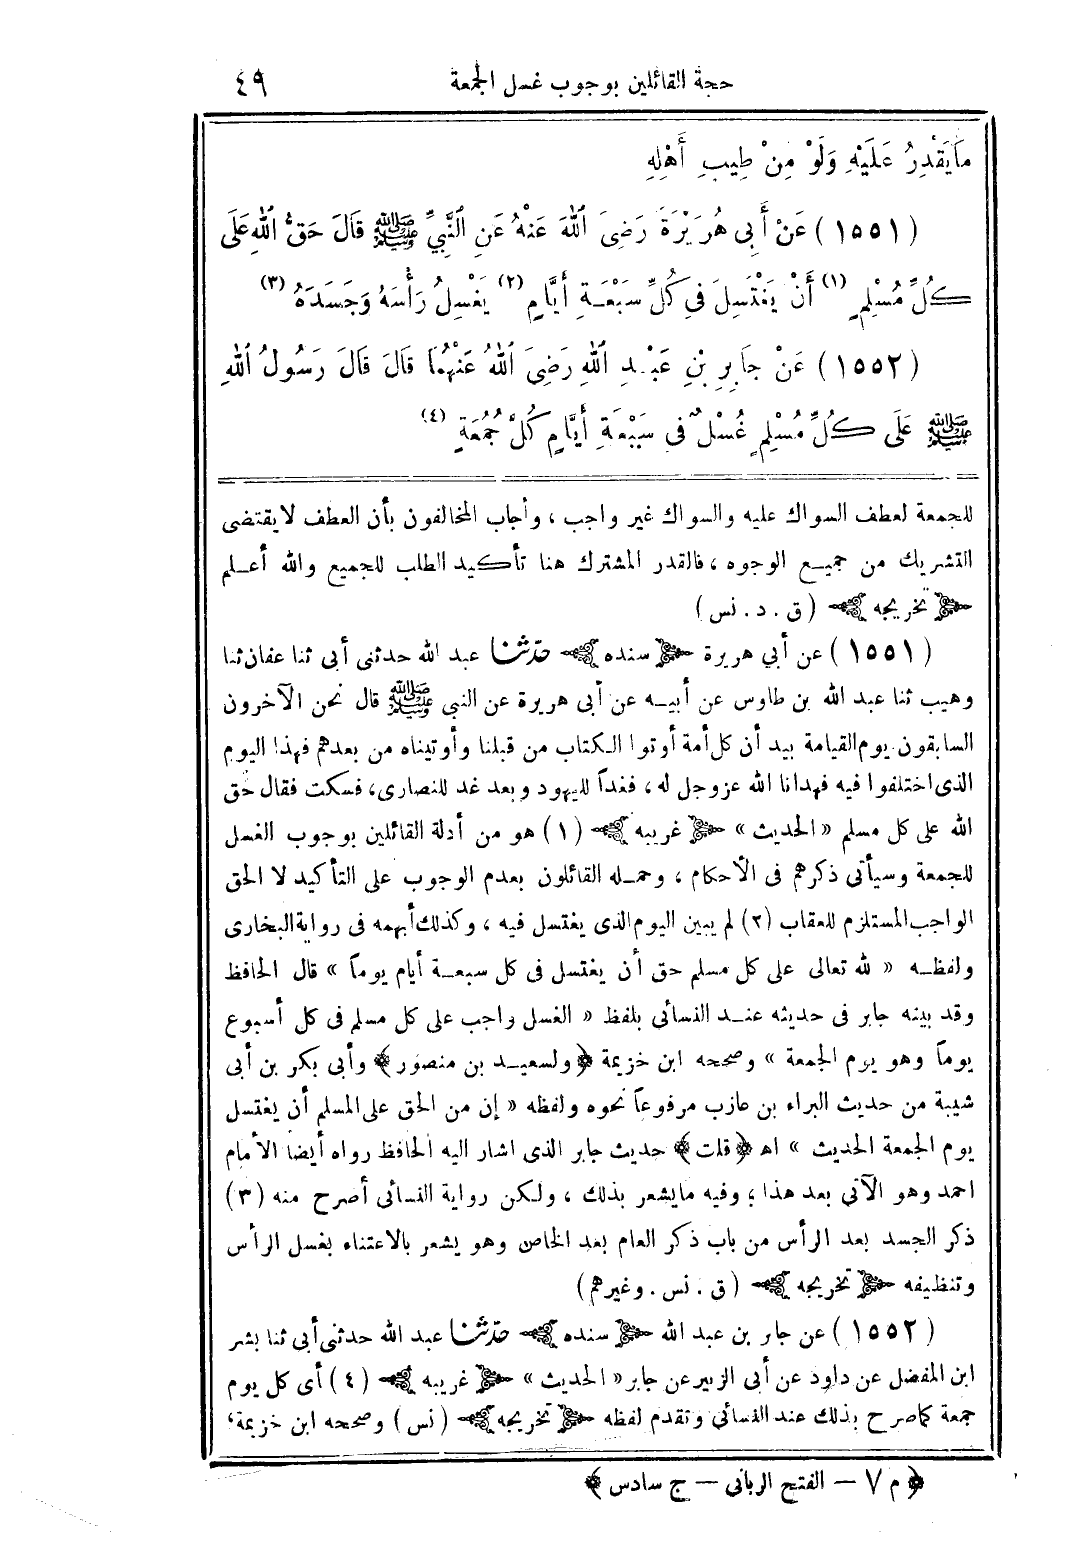 حجة القائلين بوجوب غسل الجمعة ٤٩
مَا يَقْدِرُ عَلَيْهِ وَلَوْ مِنْ طِيبِ أَهْلِهِ
(١٥٥١) عَنْ أَبِى هُرَيْرَةَ رَضِىَ اللهُ عَنْهُ عَنِ النَّبِيِّ ﷺ قَالَ حَقُّ اللهِ عَلَى
كُلِّ مُسْلِمٍ (١) أَنْ يَغْتَسِلَ فِى كُلِّ سَبْعَةِ أَيَّامٍ (٢) يَغْسِلُ رَأْسَهُ وَجَسَدَهُ (٣)
(١٥٥٢) عَنْ جَابِرِ بْنِ عَبْدِ اللهِ رَضِىَ اللهُ عَنْهُمَا قَالَ قَالَ رَسُولُ اللهِ
ﷺ عَلَى كُلِّ مُسْلِمٍ غُسْلٌ فِى سَبْعَةِ أَيَّامٍ كُلَّ جُمُعَةٍ (٤)
للجمعة لعطف السواك عليه والسواك غير واجب ، وأجاب المخالفون بأن العطف لا يقتضى
التشريك من جميع الوجوه ، فالقدر المشترك هنا تأكيد الطلب للجميع والله أعلم
﴿تخريجه﴾ (ق . د . نس)
(١٥٥١) عن أبي هريرة ﴿سنده﴾ حدّثنا عبد الله حدثنى أبى ثنا عفان ثنا
وهيب ثنا عبد الله بن طاوس عن أبيه عن أبى هريرة عن النبى ﷺ قال نحن الآخرون
السابقون يوم القيامة بيد أن كل أمة أوتوا الكتاب من قبلنا وأوتيناه من بعدهم فهذا اليوم
الذى اختلفوا فيه فهدانا الله عز وجل له ، فغداً لليهود وبعد غد للنصارى، فسكت فقال حق
الله على كل مسلم «الحديث» ﴿غريبه﴾ (١) هو من أدلة القائلين بوجوب الغسل
للجمعة وسيأتى ذكرهم فى الأحكام ، وحمله القائلون بعدم الوجوب على التأكيد لا الحق
الواجب المستلزم للعقاب (٢) لم يبين اليوم الذى يغتسل فيه ، وكذلك أبهمه فى رواية البخارى
ولفظه « لله تعالى على كل مسلم حق أن يغتسل فى كل سبعة أيام يوماً » قال الحافظ
وقد بينه جابر فى حديثه عند النسائى بلفظ « الغسل واجب على كل مسلم فى كل أسبوع
يوماً وهو يوم الجمعة » وصححه ابن خزيمة ﴿ولسعيد بن منصور﴾ وأبي بكر بن أبى
شيبة من حديث البراء بن عازب مرفوعاً نحوه ولفظه « إن من الحق على المسلم أن يغتسل
يوم الجمعة الحديث » اه ﴿قلت﴾ حديث جابر الذى اشار اليه الحافظ رواه أيضا الأمام
احمد وهو الآتى بعد هذا ؛ وفيه ما يشعر بذلك ، ولكن رواية النسائى أصرح منه (٣)
ذكر الجسد بعد الرأس من باب ذكر العام بعد الخاص وهو يشعر بالاعتناء بغسل الرأس
وتنظيفه ﴿تخريجه﴾ (ق . نس . وغيرهم)
(١٥٥٢) عن جابر بن عبد الله ﴿سنده﴾ حدّثنا عبد الله حدثنى أبى ثنا بشر
ابن المفضل عن داود عن أبى الزبير عن جابر «الحديث» ﴿غريبه﴾ (٤) أى كل يوم
جمعة كما صرح بذلك عند النسائى وتقدم لفظه ﴿تخريجه﴾ (نس) وصححه ابن خزيمة،
﴿م ٧ — الفتح الربانى — ج سادس﴾